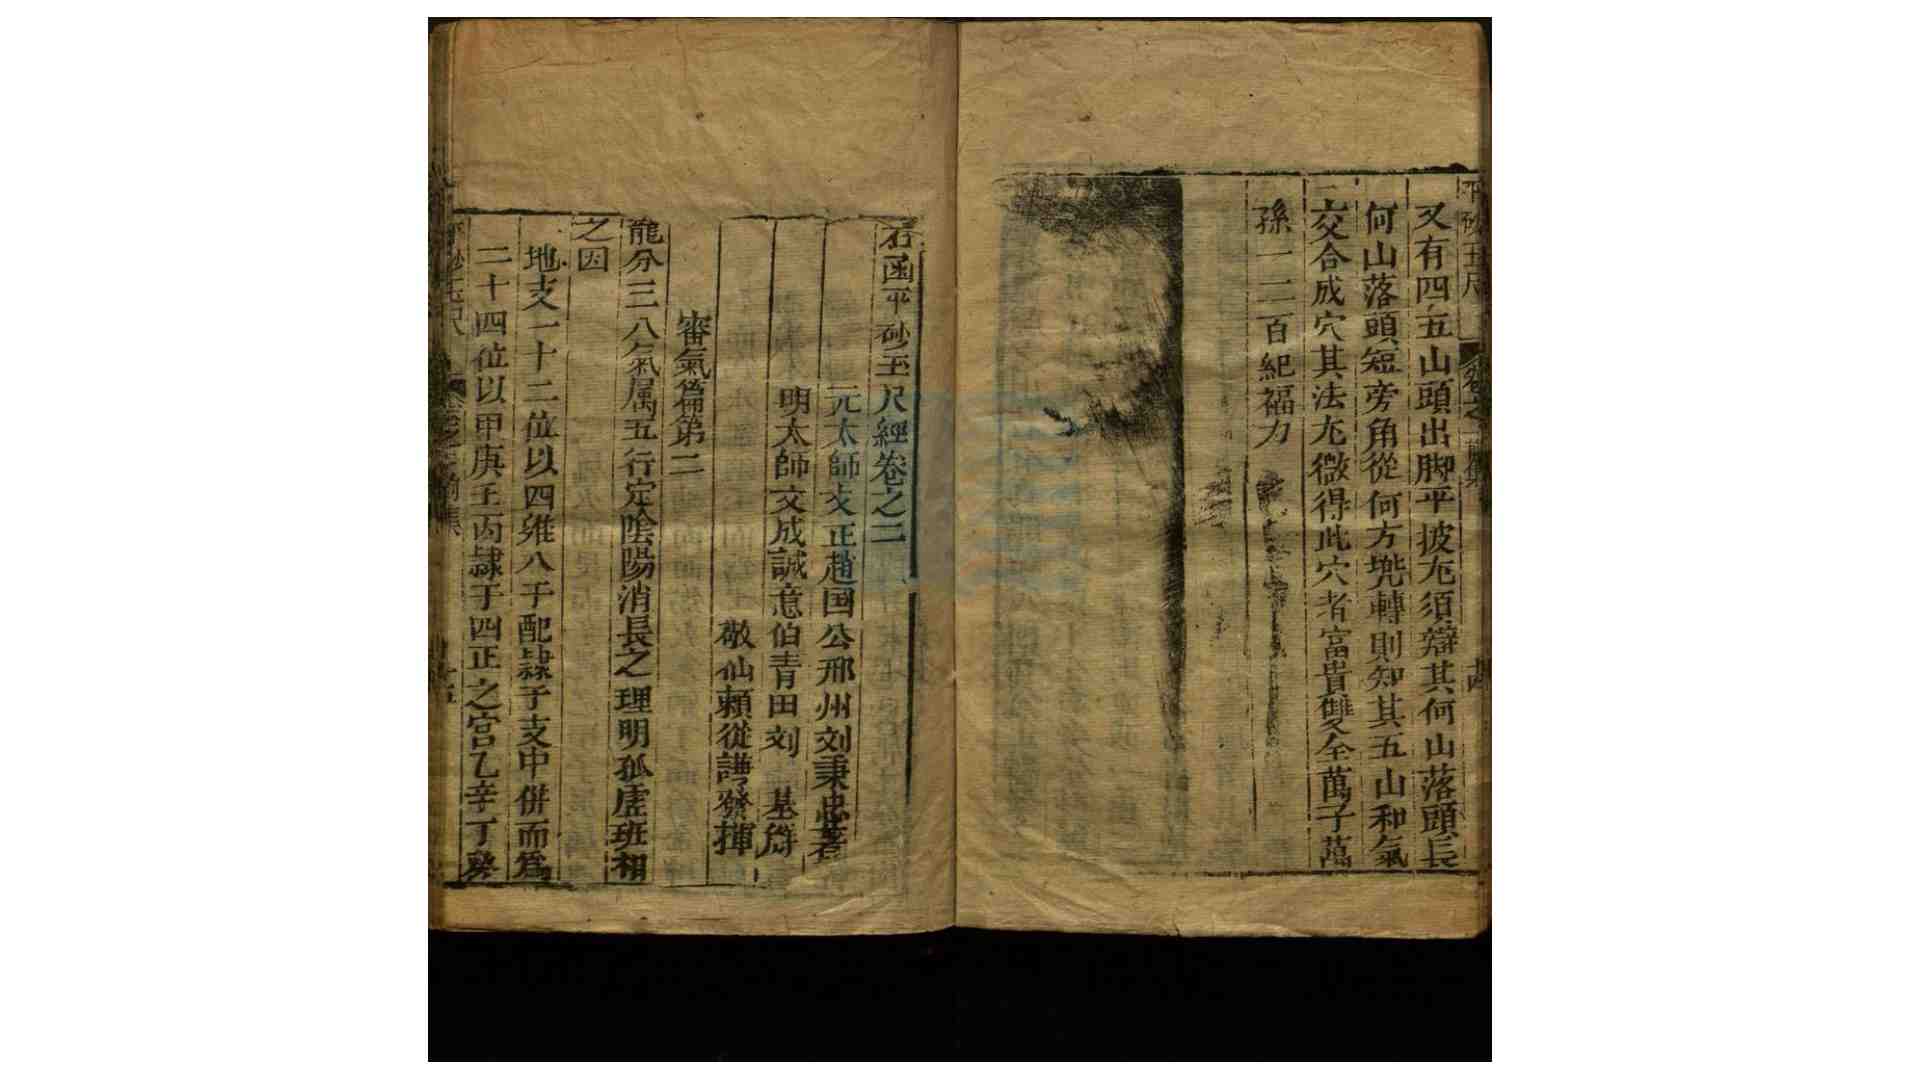 平砂玉尺 卷之一
又有四五山頭出脚平披尤須辯其何山落頭長
何山落頭短旁角從何方兠轉則知其五山和氣
交合成穴其法尤微得此穴者富貴雙全萬子萬
孫一二百紀福力
石函平砂玉尺經卷之二
元太師文正趙国公邢州刘秉忠著
明太師文成誠意伯青田刘基
敬仙賴從謙發揮
審氣篇第二
龍分三八氣属五行定陰陽消長之理明孤虗班相
之因
地支一十二位以四維八干配隷于支中併而爲
二十四位以甲庚壬丙隷于四正之宫乙辛丁癸